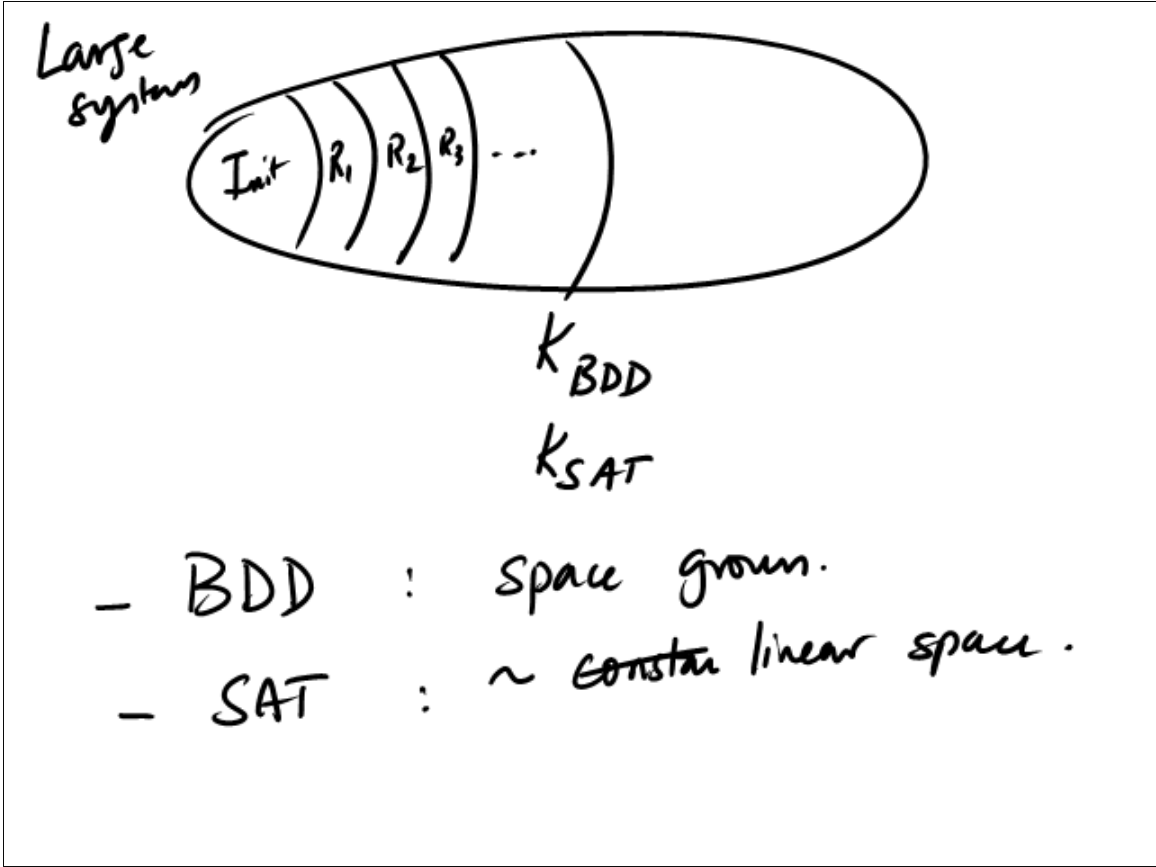 Large
systems
Init R1 R2 R3 ...
K BDD
K SAT
- BDD : space grows.
- SAT : ~ constan linear space.